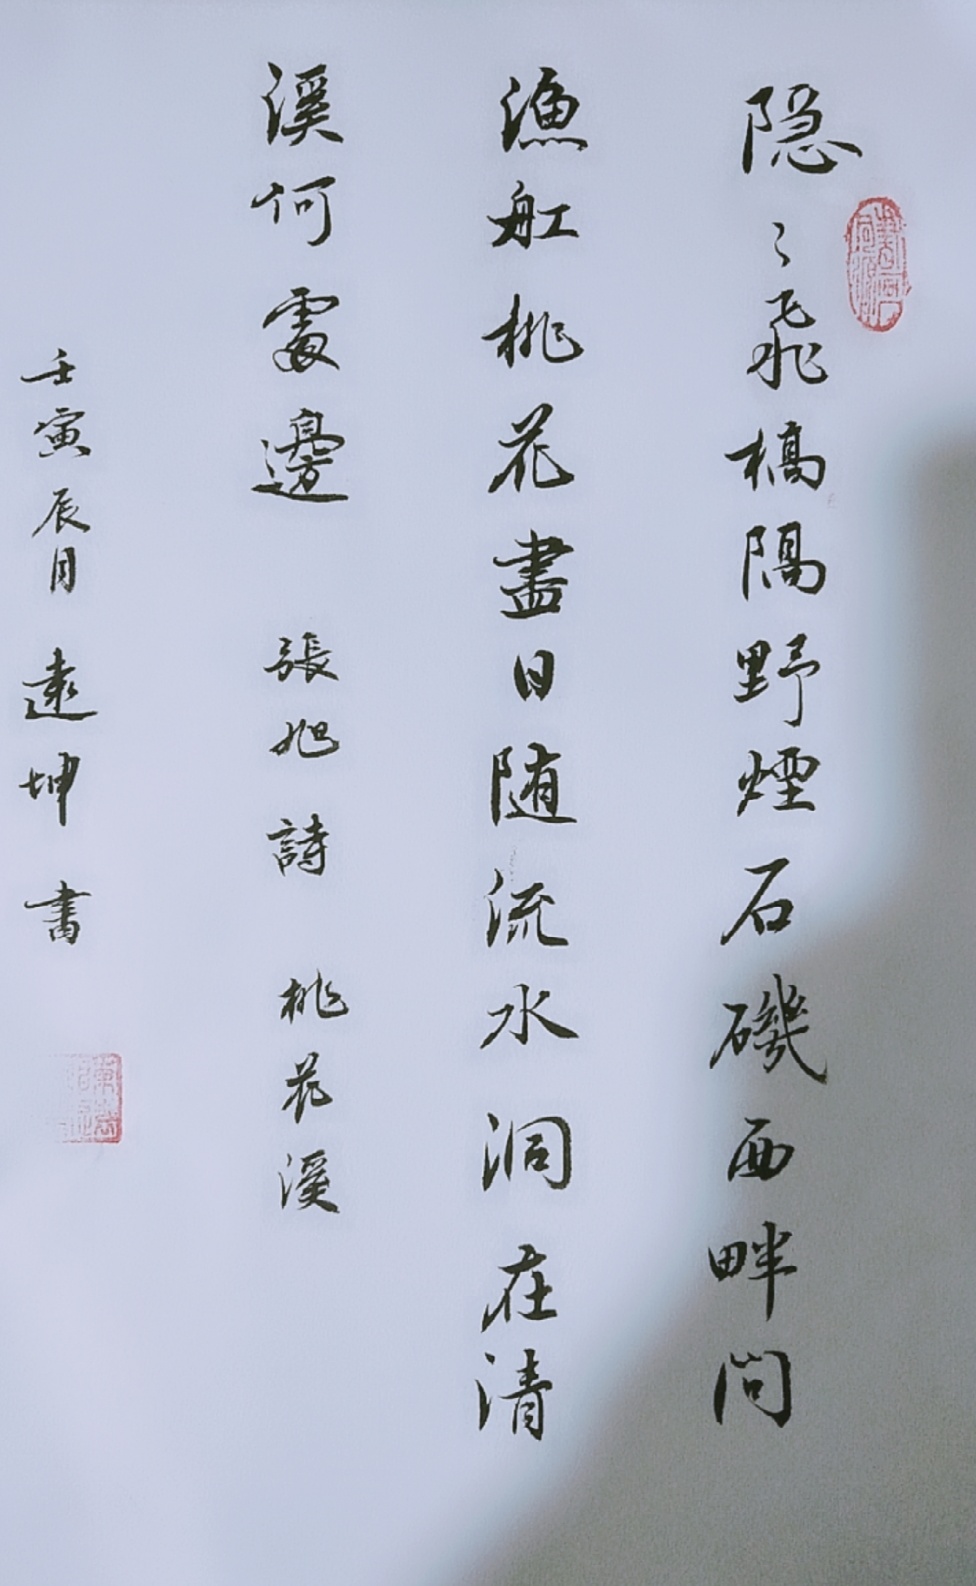 隐〻飛橋隔野煙石磯西畔问
漁舡桃花盡日随流水洞在清
溪何處邊 張旭詩 桃花溪
壬寅辰月 遠坤書